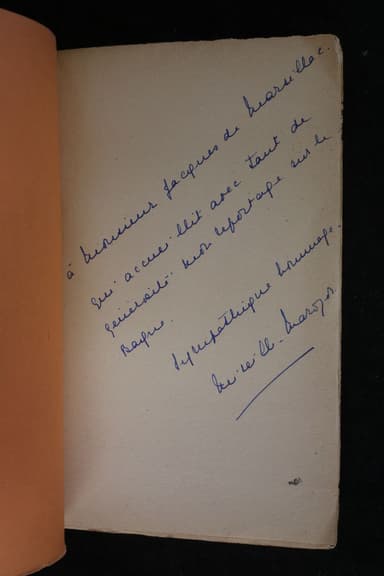 à Monsieur Jacques de Marsillac.
qui accueillit avec tant de
générosité mon reportage sur le
Bagne.
Sympathique hommage.
Mireille Maroger